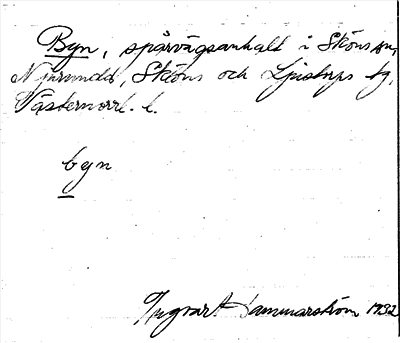 Byn, spårvägsanhalt i Sköns sn,
Njurunda, Sköns och Ljustorps tg,
Västernorrl. l.
byn
Ingvart Hammarström 1932